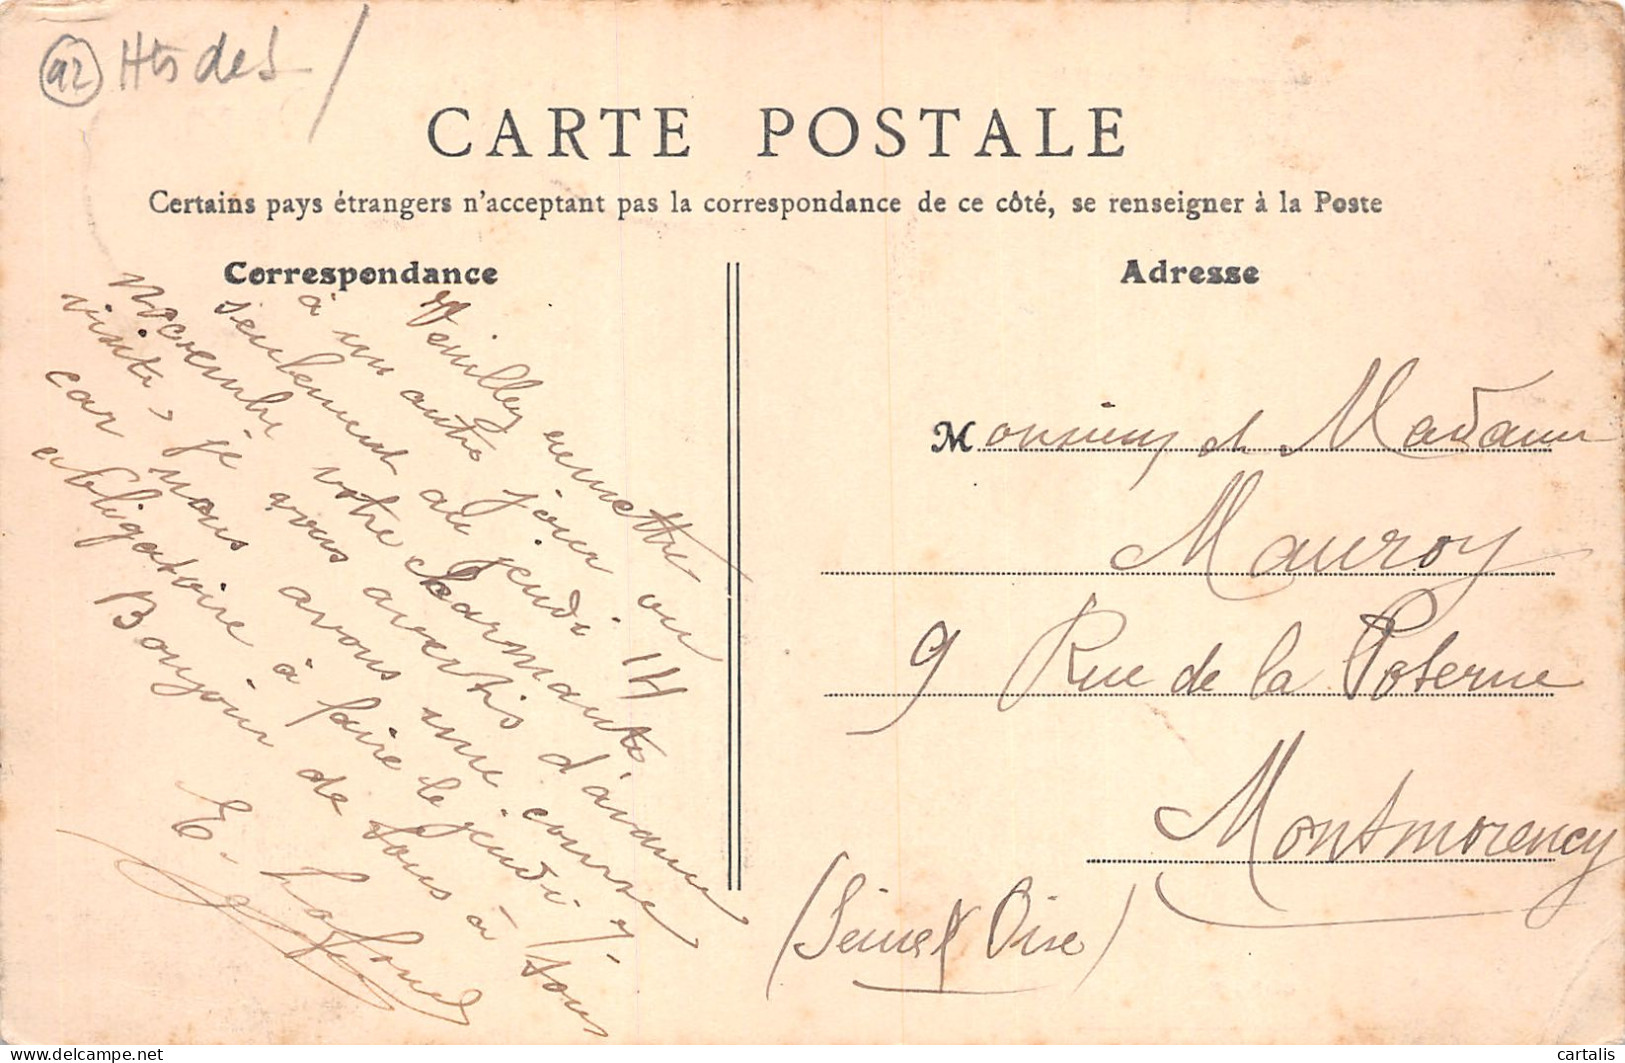 92 Hts de S
CARTE POSTALE
Certains pays étrangers n'acceptant pas la correspondance de ce côté, se renseigner à la Poste
Correspondance
Veuillez remettre
à un autre jour ou
seulement au jeudi 14
novembre votre charmante
visite, je vous avertis d'avance
car nous avons une course
obligatoire à faire le jeudi 7.
Bonjour de tous à tous
E. Lafond
Adresse
Monsieur et Madame
Mauroy
9 Rue de la Poterne
Montmorency
(Seine et Oise)
delcampe.net
cartalis